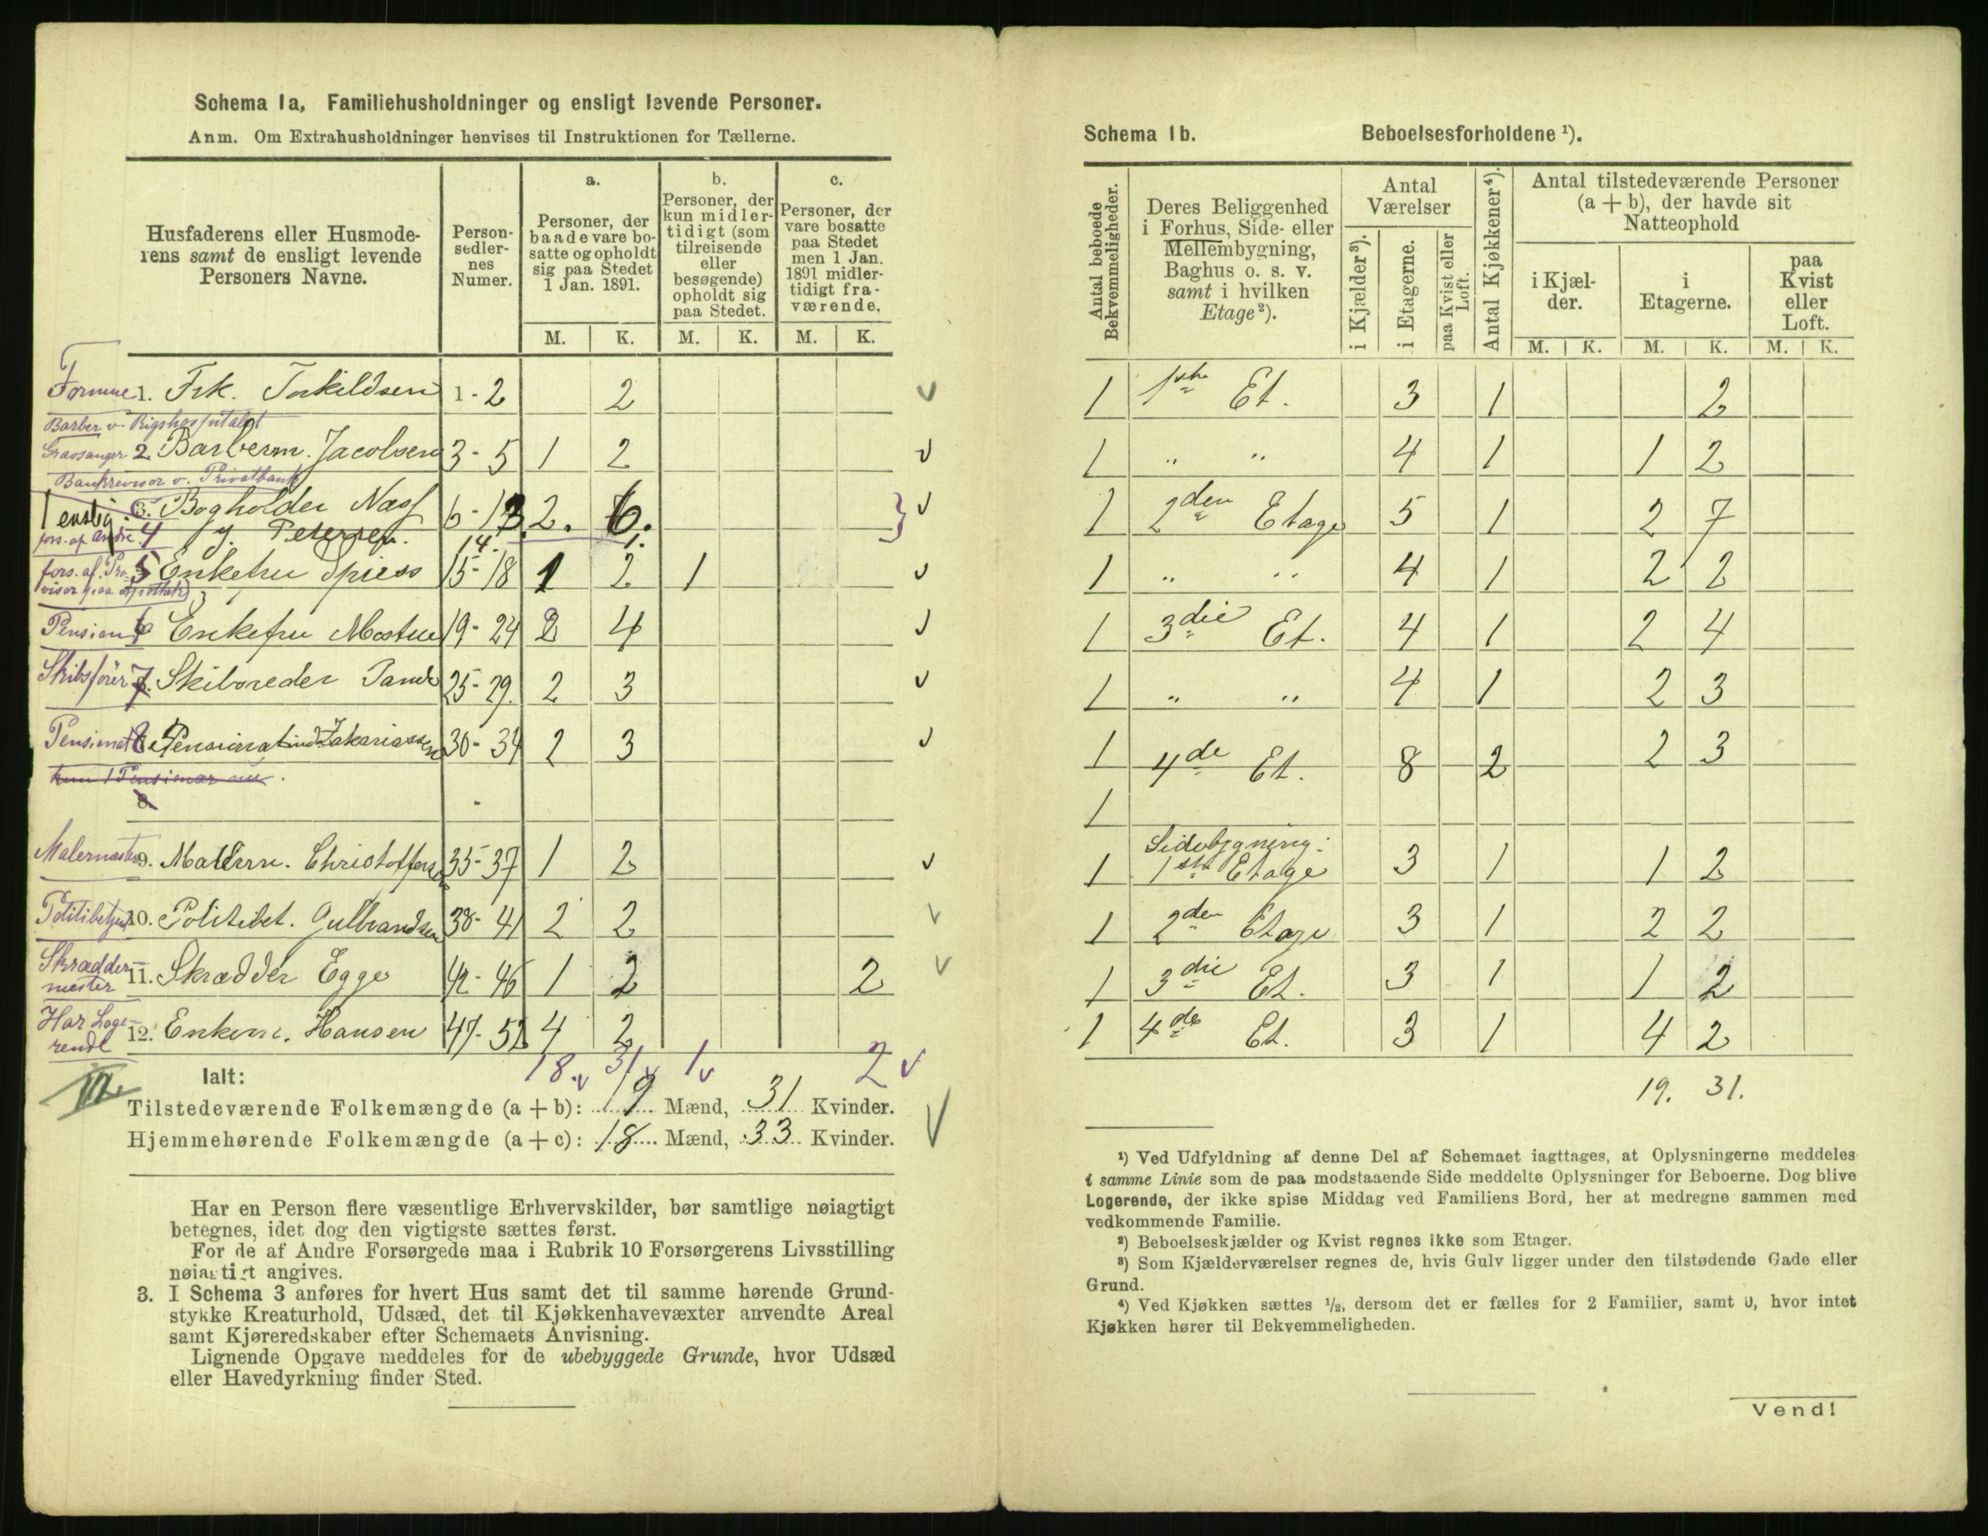 Schema 1a, Familiehusholdninger og ensligt levende Personer.
Anm. Om Extrahusholdninger henvises til Instruktionen for Tællerne.
Husfaderens eller Husmoderens samt de ensligt levende Personers Navne.
Person-sedler-nes Numer.
a. Personer, der baade vare bosatte og opholdt sig paa Stedet 1 Jan. 1891.
b. Personer, der kun midlertidigt (som tilreisende eller besøgende) opholdt sig paa Stedet.
c. Personer, der vare bosatte paa Stedet men 1 Jan. 1891 midlertidigt fraværende.
M. K. M. K. M. K.
Formue 1. Frk. Torkildsen 1-2 2 v
Barber v. Rigshospitalet
Gravsanger 2. Barberm. Jacobsen 3-5 1 2 v
Bankrevisor v. Privatbank
3. Bogholder Næss 6-13 2. 6. } v
1 enslig. fors. af andre 4 Petersen. 14. 1.
fors. af Provisor paa Apothek 5 Enkefru Spiess 15-18 1 2 1 v
Pension 6 Enkefru Mostue 19-24 2 4 v
Skibsfører 7. Skibsreder 25-29. 2 3 v
Pensionat 8 Pensionatind. Zakariassen 30-34 2 3 v
kun 1 Pensionær nu.
8.
Malermester 9. Malerm. Christoffersen 35-37 1 2 v
Politibetjent 10. Politibet. Gulbrandsen 38-41 2 2 v
Skrædder-mester 11. Skrædder Egge 42-46 1 2 2 v
Har Loge-rende 12. Enkem. Hansen 47-52 4 2
18. v 31 v 1 v 2 v
Ialt:
Tilstedeværende Folkemængde (a + b): 19 Mænd, 31 Kvinder.
Hjemmehørende Folkemængde (a + c): 18 Mænd, 33 Kvinder. V
Har en Person flere væsentlige Erhvervskilder, bør samtlige nøiagtigt
betegnes, idet dog den vigtigste sættes først.
For de af Andre Forsørgede maa i Rubrik 10 Forsørgerens Livsstilling
nøiagtigt angives.
3. I Schema 3 anføres for hvert Hus samt det til samme hørende Grund-
stykke Kreaturhold, Udsæd, det til Kjøkkenhavevæxter anvendte Areal
samt Kjøreredskaber efter Schemaets Anvisning.
Lignende Opgave meddeles for de ubebyggede Grunde, hvor Udsæd
eller Havedyrkning finder Sted.
Schema 1b. Beboelsesforholdene ¹).
Antal beboede Bekvemmeligheder.
Deres Beliggenhed i Forhus, Side- eller Mellembygning, Baghus o. s. v. samt i hvilken Etage ²).
Antal Værelser
i Kjælder ³).
i Etagerne.
paa Kvist eller Loft.
Antal Kjøkkener ⁴).
Antal tilstedeværende Personer (a + b), der havde sit Natteophold
i Kjælder.
i Etagerne.
paa Kvist eller Loft.
M. K. M. K. M. K.
1 1ste Et. 3 1 2
1 " " 4 1 1 2
1 2den Etage 5 1 2 7
1 " " 4 1 2 2
1 3die Et. 4 1 2 4
1 " " 4 1 2 3
1 4de Et. 8 2 2 3
1
Sidebygning:
1 1ste Etage 3 1 1 2
1 2den Etage 3 1 2 2
1 3die Et. 3 1 1 2
1 4de Et. 3 1 4 2
19. 31.
¹) Ved Udfyldning af denne Del af Schemaet iagttages, at Oplysningerne meddeles
i samme Linie som de paa modstaaende Side meddelte Oplysninger for Beboerne. Dog blive
Logerende, der ikke spise Middag ved Familiens Bord, her at medregne sammen med
vedkommende Familie.
²) Beboelseskjælder og Kvist regnes ikke som Etager.
³) Som Kjælderværelser regnes de, hvis Gulv ligger under den tilstødende Gade eller
Grund.
⁴) Ved Kjøkken sættes ½, dersom det er fælles for 2 Familier, samt 0, hvor intet
Kjøkken hører til Bekvemmeligheden.
Vend!